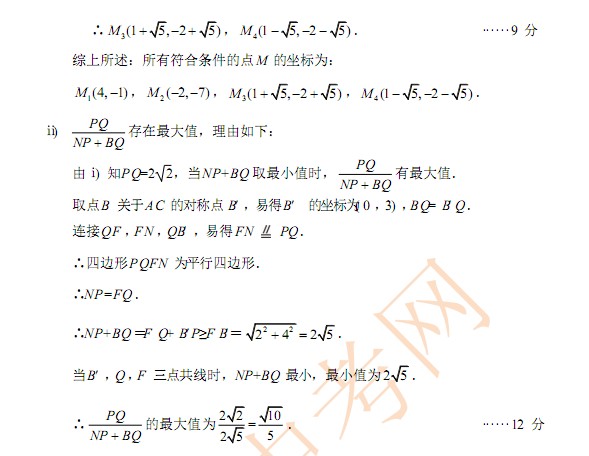 ∴ M₃(1+√5,−2+√5), M₄(1−√5,−2−√5). ······9 分
综上所述：所有符合条件的点M 的坐标为：
M₁(4,−1), M₂(−2,−7), M₃(1+√5,−2+√5), M₄(1−√5,−2−√5).
ii) PQ/(NP+BQ) 存在最大值，理由如下：
由 i) 知PQ=2√2，当NP+BQ 取最小值时，PQ/(NP+BQ) 有最大值．
取点B 关于AC 的对称点 B′，易得B′ 的坐标为(0，3)，BQ= B′Q．
连接QF，FN，QB′，易得FN ∥= PQ．
∴四边形PQFN 为平行四边形．
∴NP=FQ．
∴NP+BQ=F Q+ B′P≥F B′= √(2²+4²) =2√5．
当B′，Q，F 三点共线时，NP+BQ 最小，最小值为2√5．
∴ PQ/(NP+BQ) 的最大值为 2√2/2√5=√10/5． ······12 分
中考网